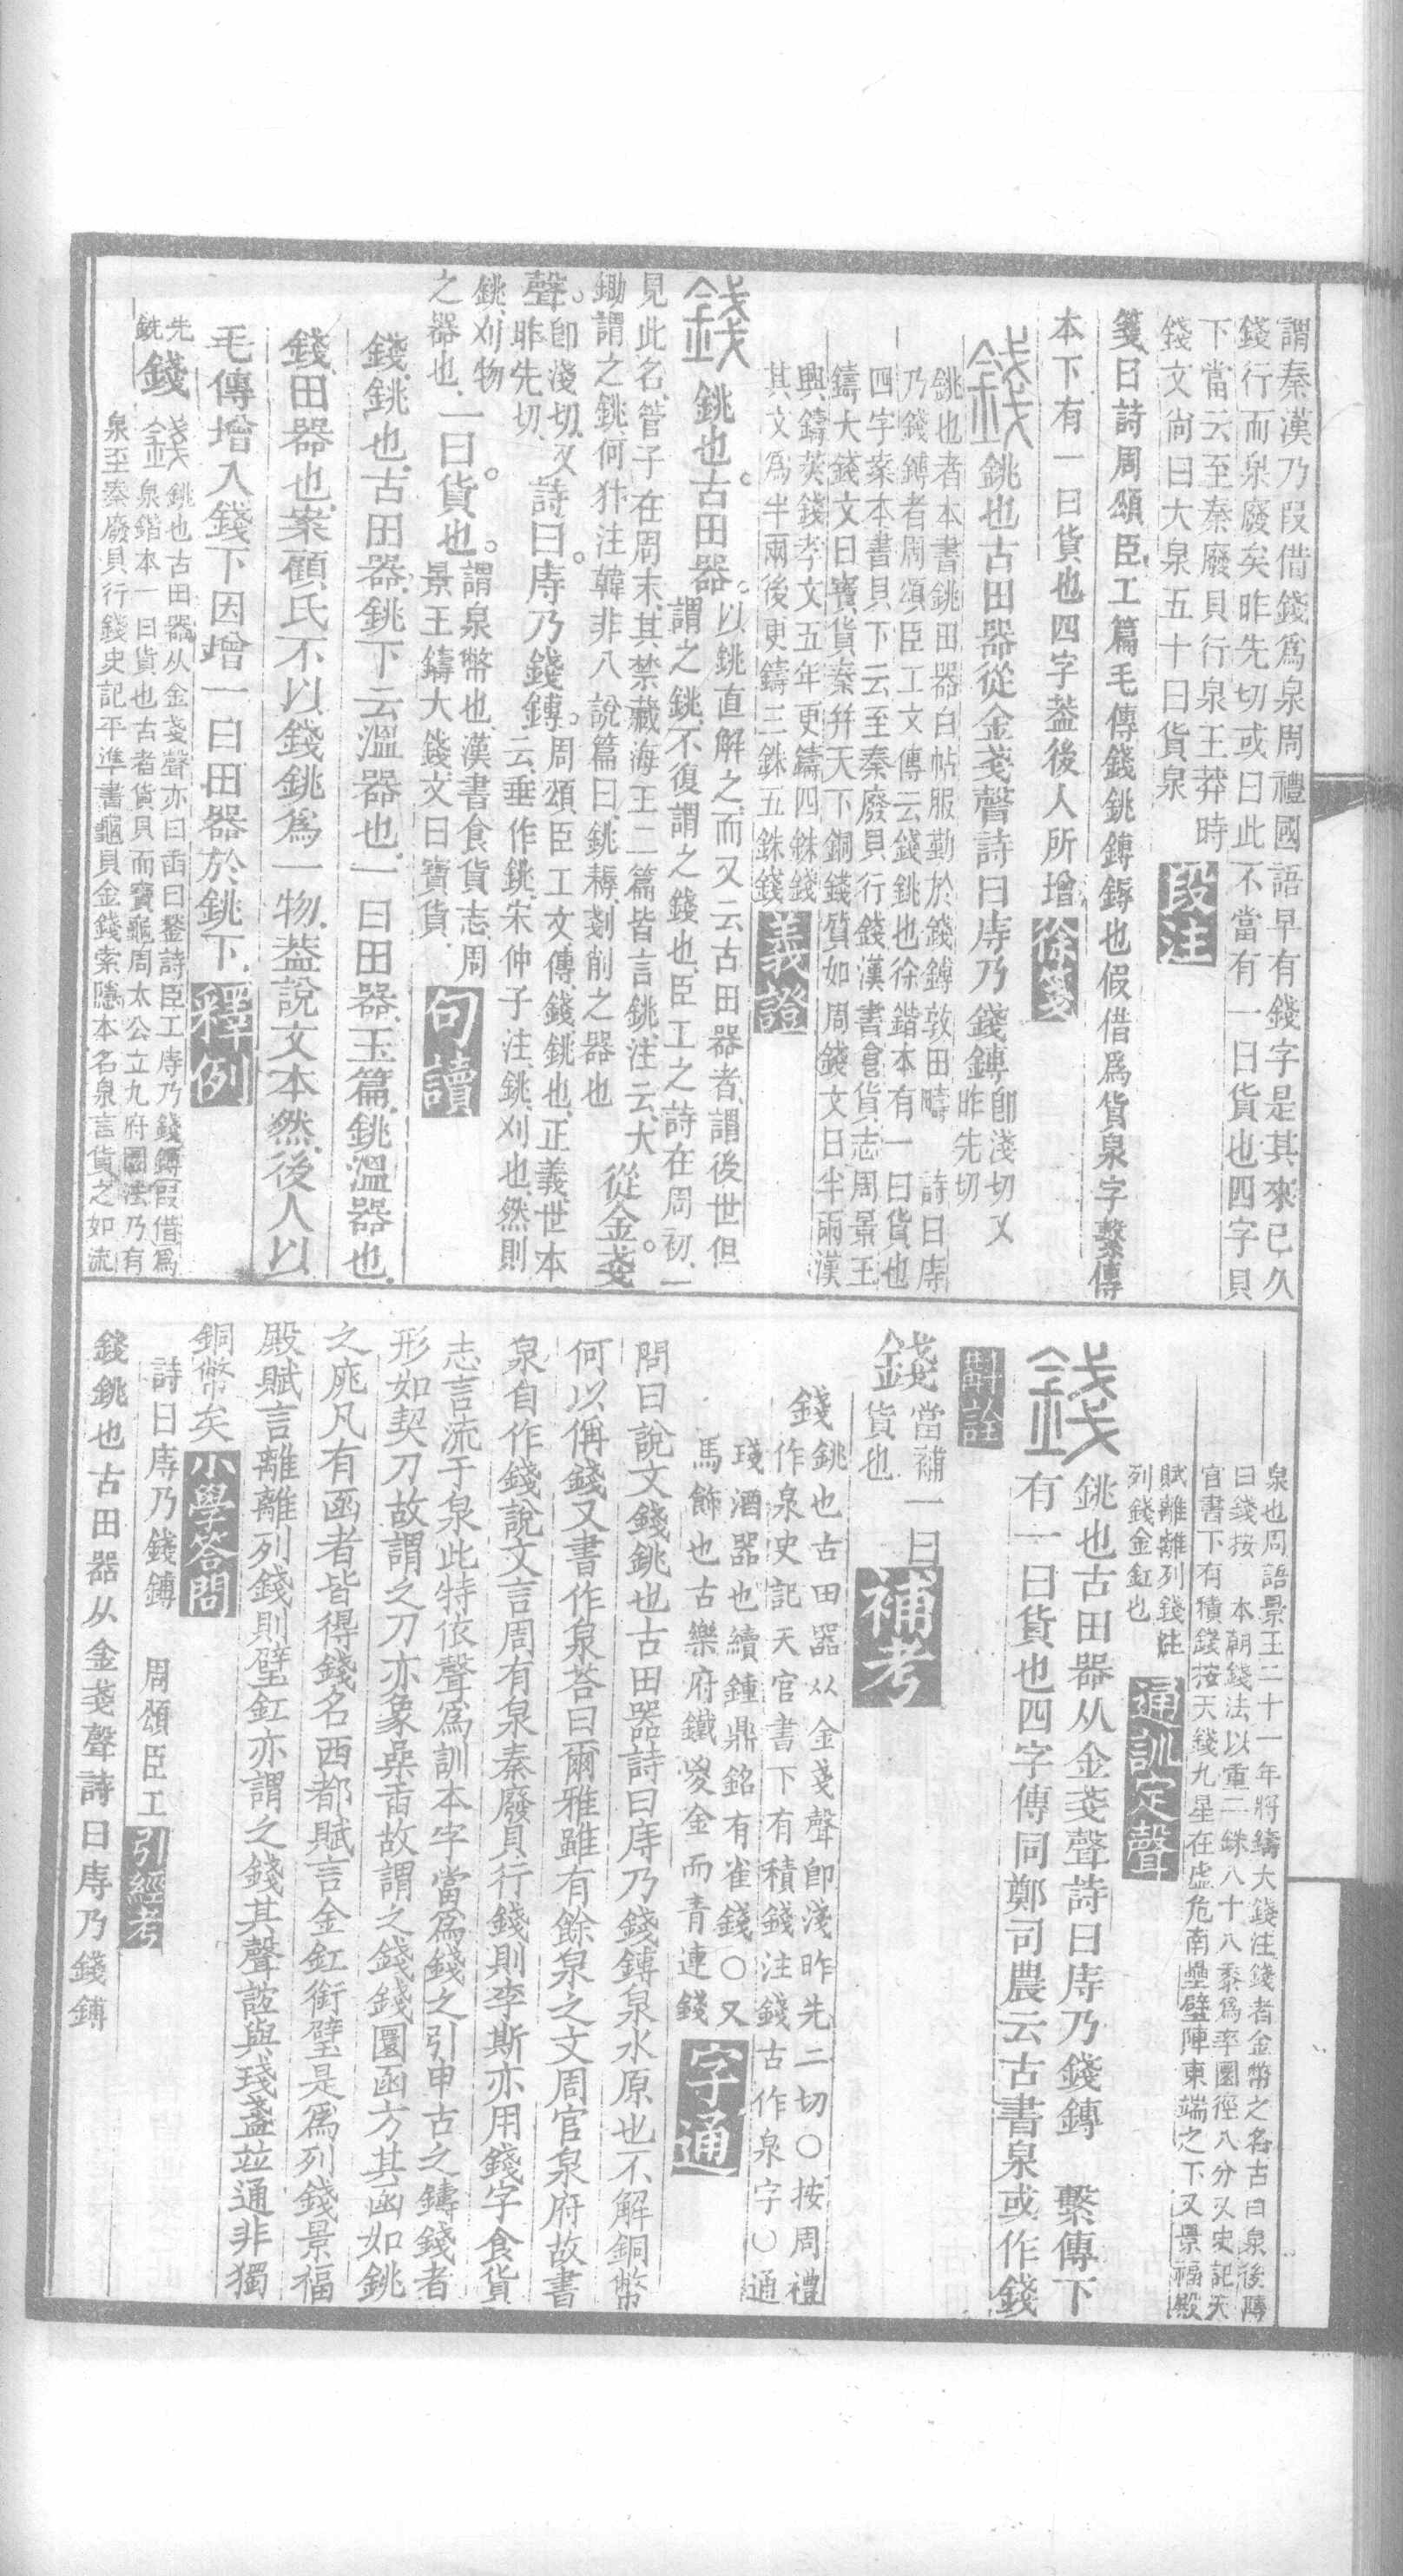 謂秦漢乃叚借錢爲泉周禮國語早有錢字是其來已久
錢行而泉廢矣昨先切或曰此不當有一曰貨也四字貝
下當云至秦廢貝行泉王莽時
錢文尚曰大泉五十曰貨泉
段注
箋曰詩周頌臣工篇毛傳錢銚鎛鎒也假借爲貨泉字繫傳
本下有一曰貨也四字葢後人所增
徐箋
錢 銚也古田器從金戔聲詩曰庤乃錢鎛
卽淺切又
昨先切
銚也者本書銚田器白帖服勤於錢鎛敦田疇 詩曰庤
乃錢鎛者周頌臣工文傳云錢銚也徐鍇本有一曰貨也
四字案本書貝下云至秦廢貝行錢漢書食貨志周景王
鑄大錢文曰寶貨秦幷天下銅錢質如周錢文曰半兩漢
興鑄莢錢孝文五年更鑄四銖錢
其文爲半兩後更鑄三銖五銖錢
義證
錢 銚也。古田器。
以銚直解之而又云古田器者謂後世但
謂之銚不復謂之錢也臣工之詩在周初一
見此名管子在周末其禁藏海王二篇皆言銚注云大
鋤謂之銚何犿注韓非八說篇曰銚耨剗削之器也
從金戔
聲。
卽淺切又
昨先切
詩曰。庤乃錢鎛。
周頌臣工文傳錢銚也正義世本
云垂作銚宋仲子注銚刈也然則
銚刈物
之器也
一曰。貨也。
謂泉幣也漢書食貨志周
景王鑄大錢文曰寶貨
句讀
錢銚也古田器銚下云溫器也一曰田器玉篇銚溫器也
錢田器也案顧氏不以錢銚爲一物葢說文本然後人以
毛傳增入錢下因增一曰田器於銚下
釋例
先
銑
錢
銚也古田器从金戔聲亦曰臿曰鍫詩臣工庤乃錢鎛叚借爲
泉鍇本一曰貨也古者貨貝而寶龜周太公立九府圜法乃有
泉至秦廢貝行錢史記平準書龜貝金錢索隱本名泉言貨之如流
泉也周語景王二十一年將鑄大錢注錢者金幣之名古曰泉後轉
曰錢按 本朝錢法以重二銖八十八黍爲率圜徑八分又史記天
官書下有積錢按天錢九星在虛危南壘壁陣東端之下又景福殿
賦離離列錢注
列錢金釭也
通訓定聲
錢 銚也古田器从金戔聲詩曰庤乃錢鎛 繫傳下
有一曰貨也四字傳同鄭司農云古書泉或作錢
斠詮
錢
當補一曰
貨也
補考
錢銚也古田器从金戔聲卽淺昨先二切○按周禮
作泉史記天官書下有積錢注錢古作泉字○通
琖酒器也續鍾鼎銘有雀錢○又
馬飾也古樂府鐵鍐金而青連錢
字通
問曰說文錢銚也古田器詩曰庤乃錢鎛泉水原也不解銅幣
何以偁錢又書作泉荅曰爾雅雖有餘泉之文周官泉府故書
泉自作錢說文言周有泉秦廢貝行錢則李斯亦用錢字食貨
志言流于泉此特依聲爲訓本字當爲錢之引申古之鑄錢者
形如契刀故謂之刀亦象㮚臿故謂之錢錢圜函方其函如銚
之庣凡有函者皆得錢名西都賦言金釭銜璧是爲列錢景福
殿賦言離離列錢則璧釭亦謂之錢其聲誼與琖盞竝通非獨
銅幣矣
小學荅問
詩曰庤乃錢鎛 周頌臣工
引經考
錢銚也古田器从金戔聲詩曰庤乃錢鎛